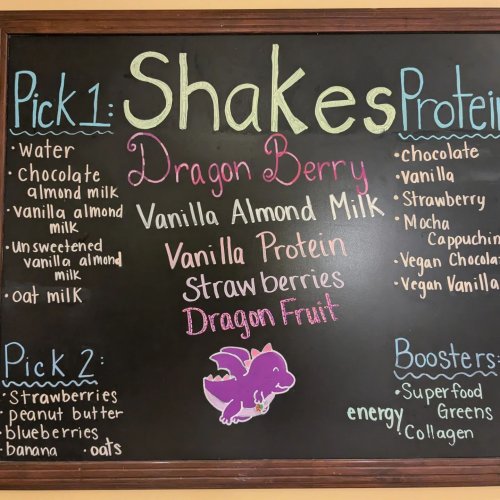 Shakes
Pick 1:
• Water
• Chocolate
almond milk
• vanilla almond
milk
• unsweetened
vanilla almond
milk
• oat milk
Dragon Berry
Vanilla Almond Milk
Vanilla Protein
Strawberries
Dragon Fruit
Protein
• chocolate
• vanilla
• Strawberry
• Mocha
Cappuchin
• Vegan Chocola
• Vegan Vanilla
Pick 2:
• Strawberries
• peanut butter
• blueberries
• banana • oats
Boosters:
• Superfood
Greens
energy
• Collagen